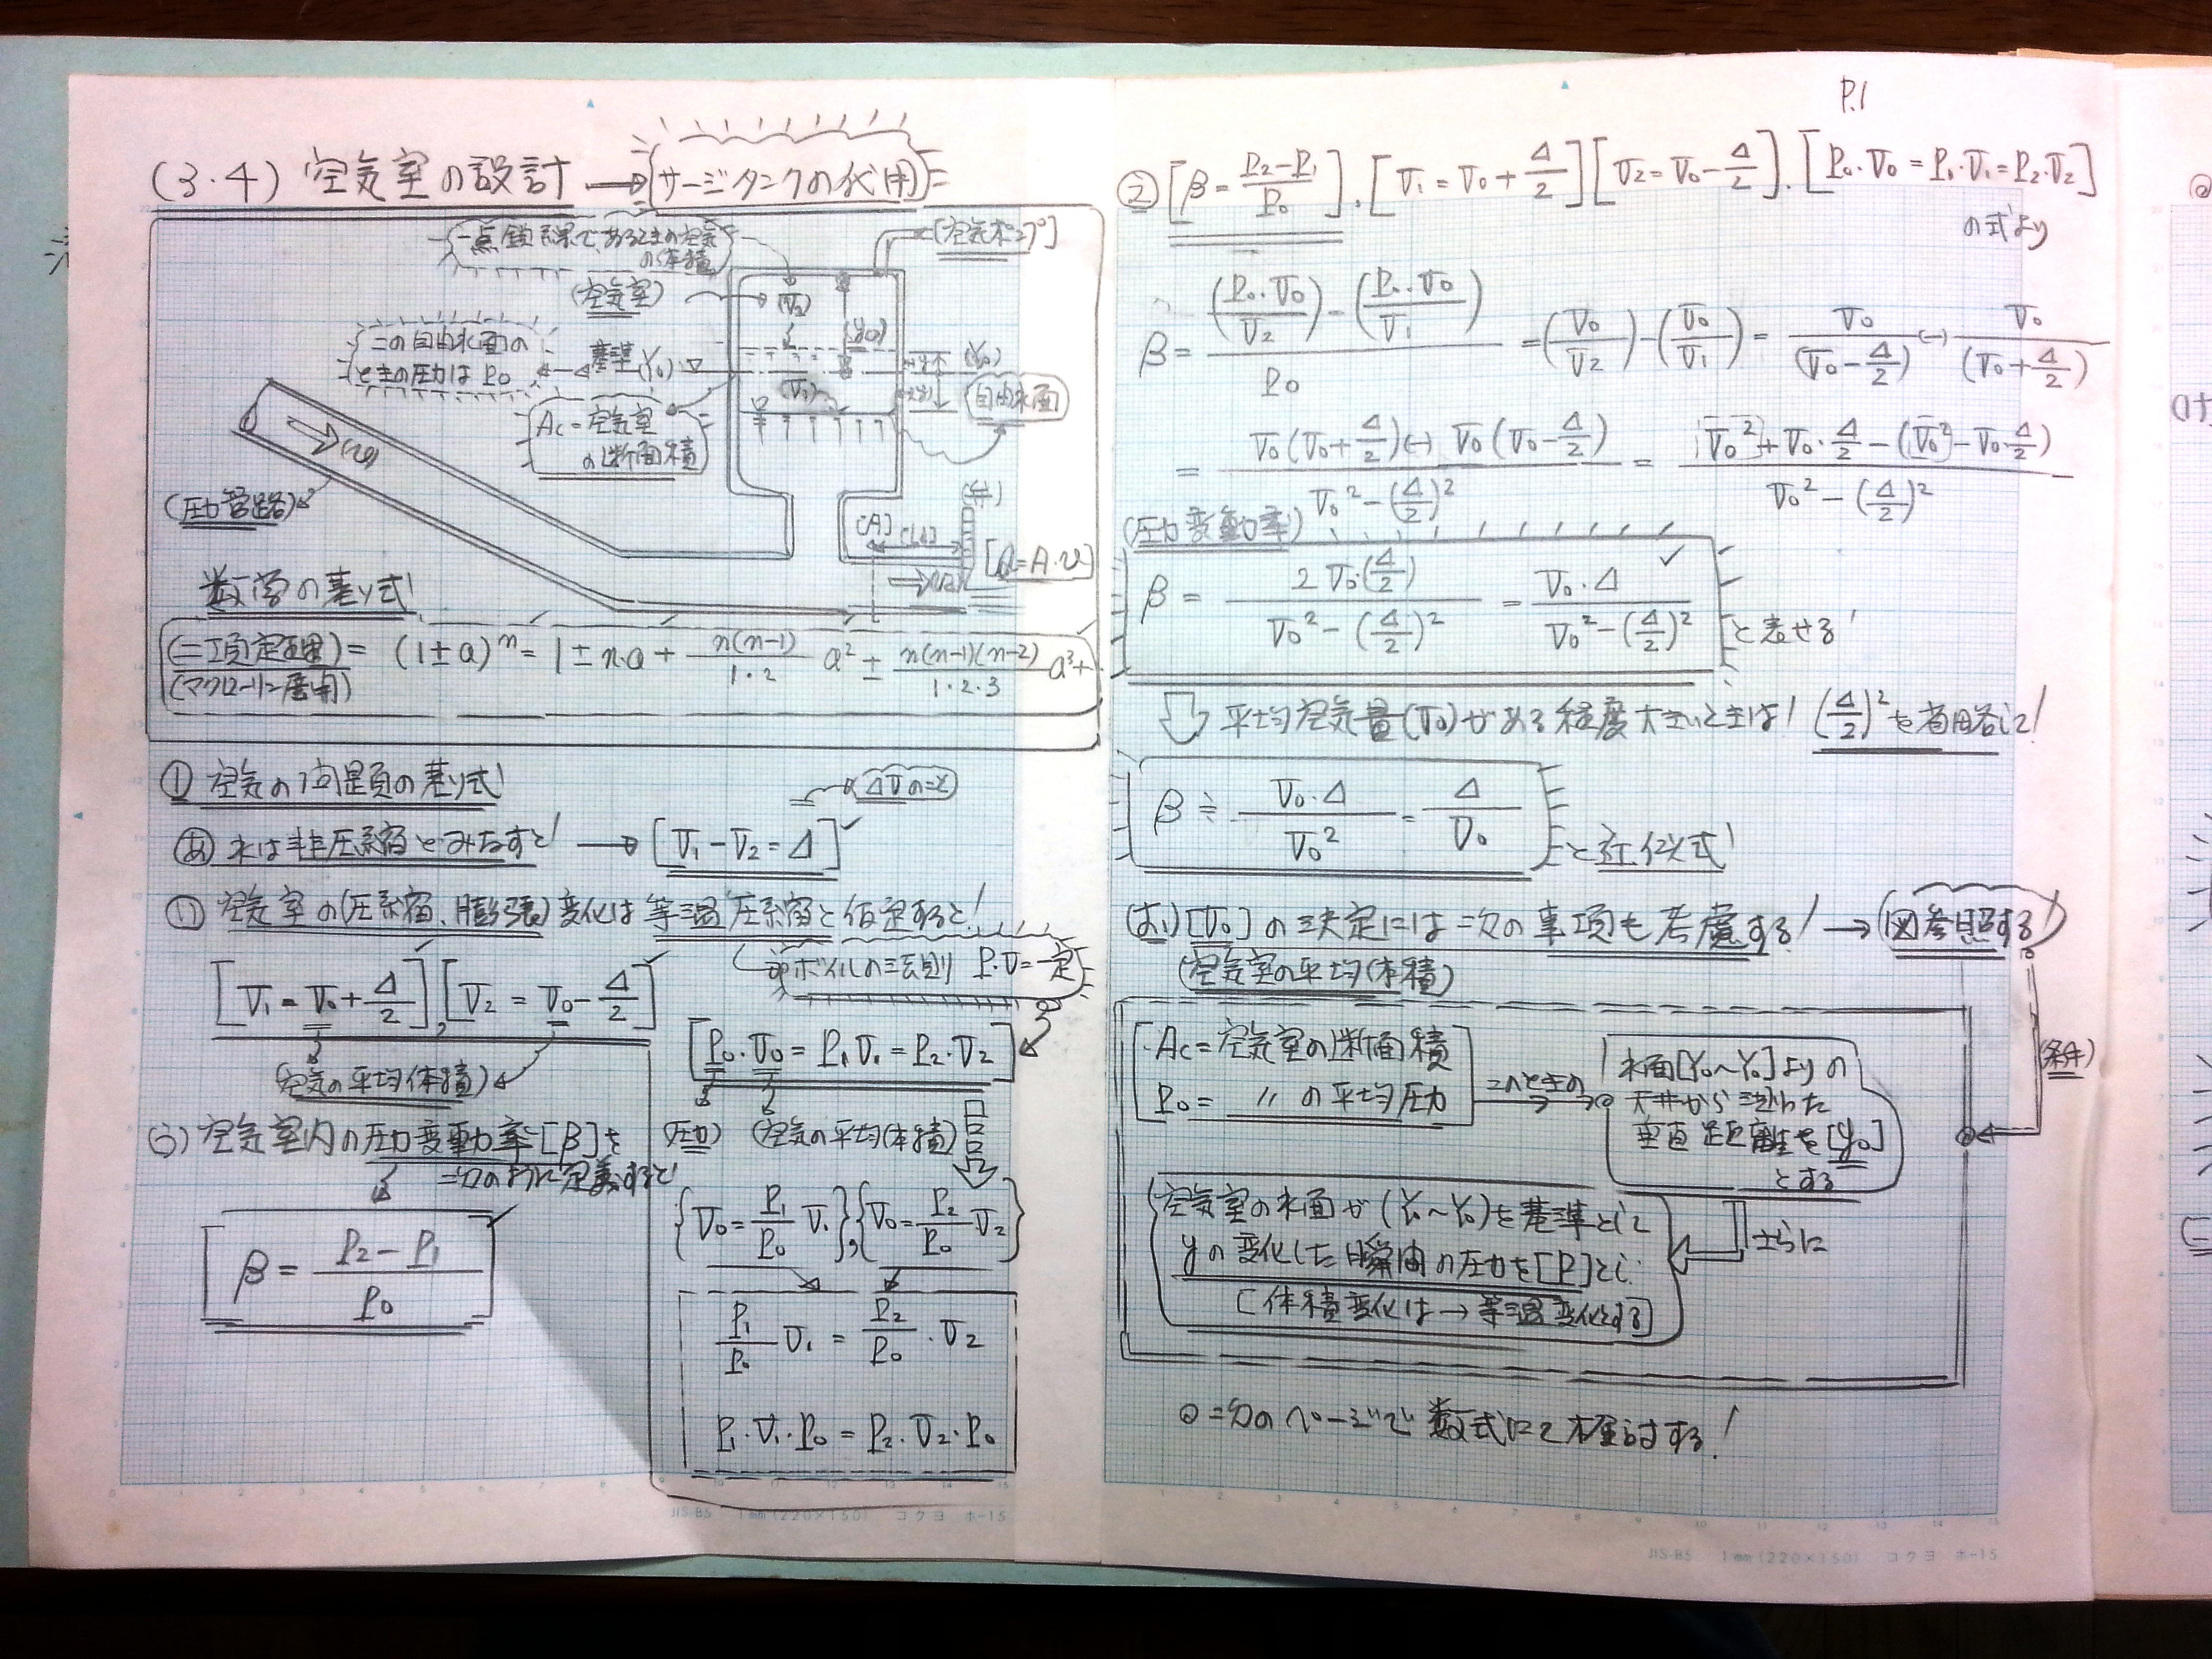 P.1
(3.4) 空気室の設計 → (サージタンクの代用)
一点鎖線であるときの空気
の体積
[空気ポンプ]
(空気室)
(V₂)
(y₀)
この自由水面の
ときの圧力は P₀
基準(Y₀)
(Y₀)
(V₁)
(自由水面)
Ac=空気室
の断面積
(v)
(圧力管路)
(弁)
(A)
[Q=A・v]
数学の基り式!
(二項定理) = (1±a)ⁿ = 1±n・a + n(n-1)/1・2 a² ± n(n-1)(n-2)/1・2・3 a³+
(マクローリン展開)
① 空気の性質の基り式!
(ΔVのこと)
あ 水は非圧縮とみなすと! → [V₁-V₂=Δ]
い 空気室の(圧縮、膨張)変化は等温圧縮と仮定すると!
ボイルの法則 P・V=一定
[V₁=V₀+Δ/2], [V₂=V₀-Δ/2]
[P₀・V₀=P₁V₁=P₂・V₂]
(空気の平均体積)
(圧力) (空気の平均体積)
う) 空気室内の圧力変動率[β]を
次のように定義すると!
β = (P₂-P₁)/P₀
{V₀=P₁/P₀ V₁}, {V₀=P₂/P₀ V₂}
P₁/P₀ V₁ = P₂/P₀・V₂
P₁・V₁・P₀ = P₂・V₂・P₀
JIS-B5 1mm(220×150) コクヨ ホ-15
② [β=(P₂-P₁)/P₀]. [V₁=V₀+Δ/2] [V₂=V₀-Δ/2]. [P₀・V₀=P₁・V₁=P₂・V₂]
の式より
β = ((P₀・V₀/V₂)-(P₀・V₀/V₁))/P₀ = (V₀/V₂)-(V₀/V₁) = V₀/(V₀-Δ/2) (-) V₀/(V₀+Δ/2)
= (V₀(V₀+Δ/2)(-)V₀(V₀-Δ/2))/(V₀²-(Δ/2)²) = (V₀²+V₀・Δ/2-(V₀²-V₀・Δ/2))/(V₀²-(Δ/2)²)
(圧力変動率)
β = 2V₀・(Δ/2)/(V₀²-(Δ/2)²) = V₀・Δ/(V₀²-(Δ/2)²) と表せる!
平均空気量(V₀)がある程度大きいときは! (Δ/2)²を省略して!
β ≒ V₀・Δ/V₀² = Δ/V₀ と近似式!
[V₀]の決定には次の事項も考慮する! → (図参照する)
(空気室の平均体積)
・Ac=空気室の断面積
P₀= 〃 の平均圧力
このときの
水面[Y₀~Y₀]よりの
天井から測った
垂直距離を[y₀]
とする
(条件)
さらに
空気室の水面が(Y₀~Y₀)を基準として
yの変化した瞬間の圧力を[P]とし
[体積変化は→等温変化とする]
⊙ 次のページで数式にて検討する!
JIS-B5 1mm(220×150) コクヨ ホ-15